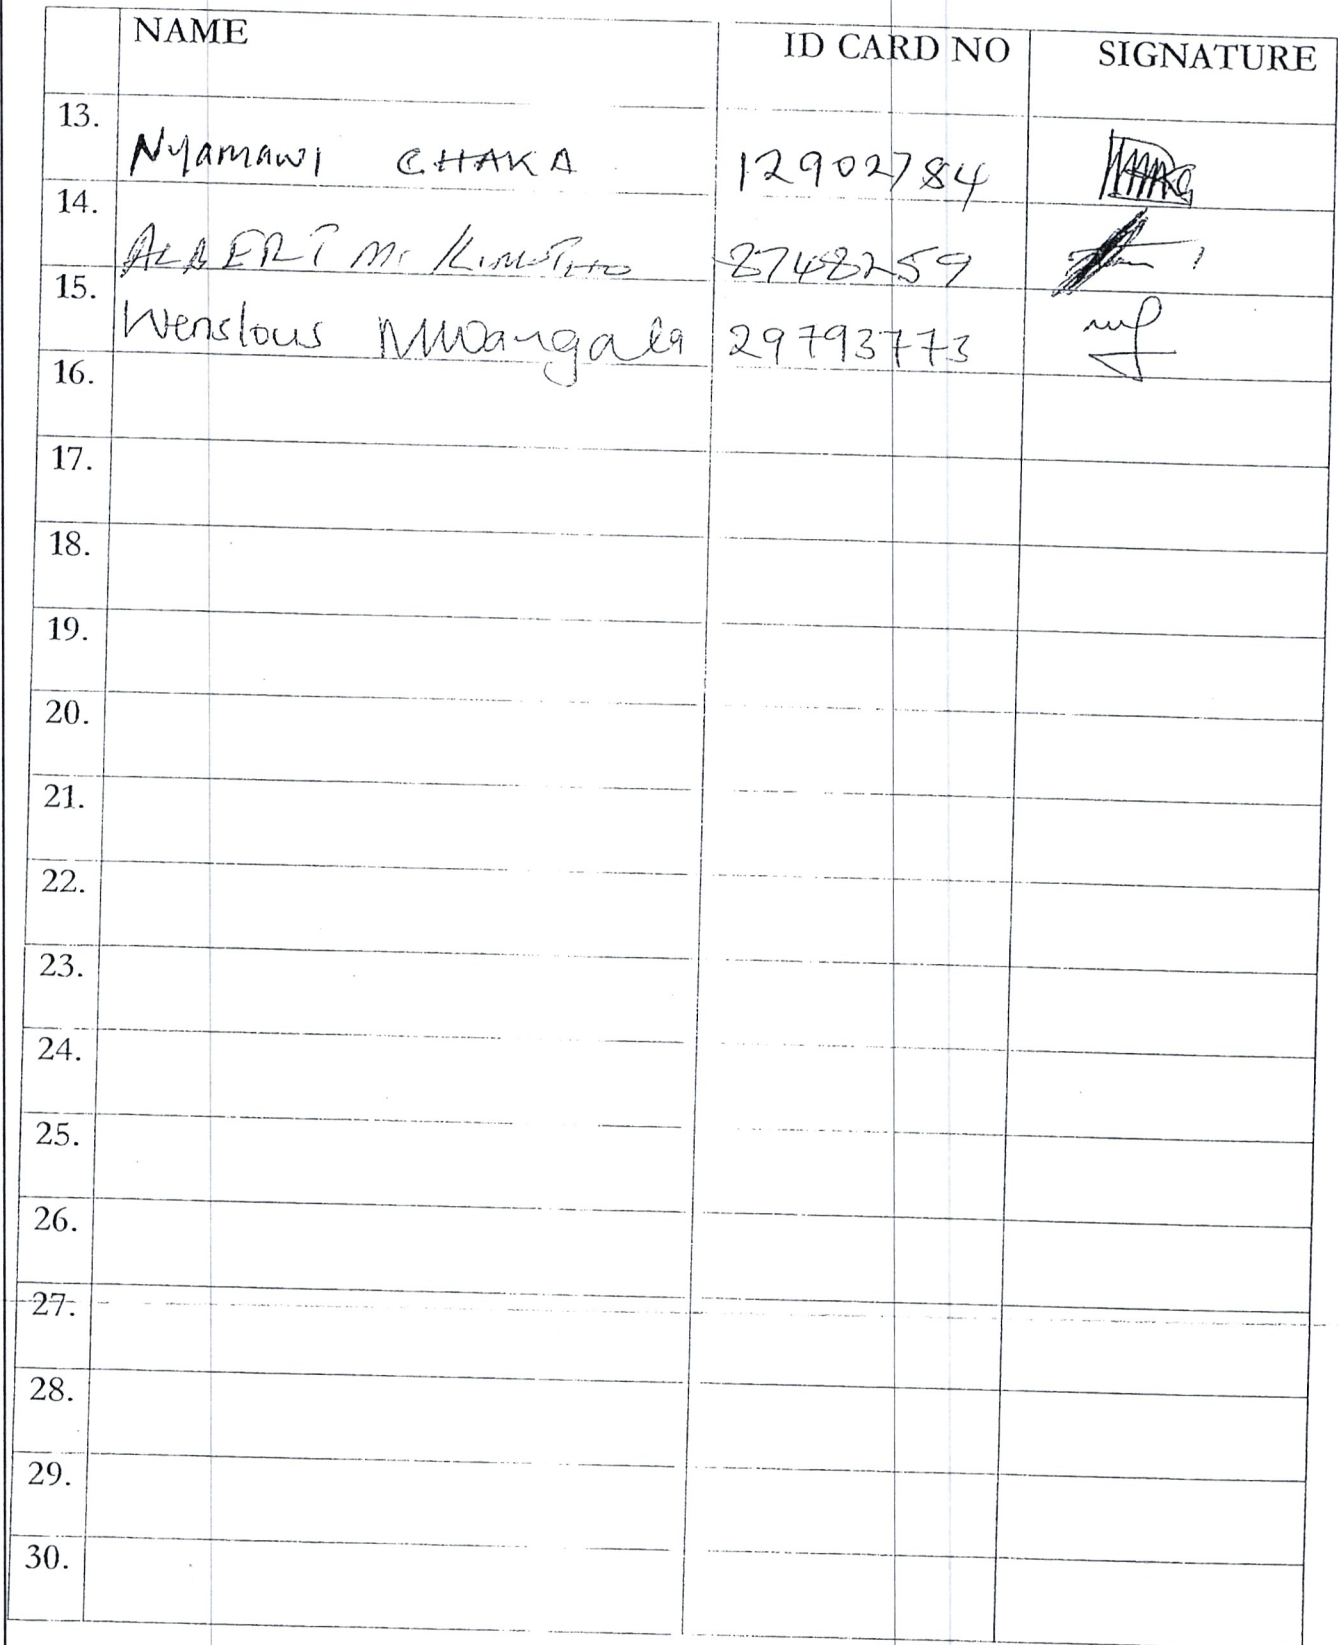 NAME ID CARD NO SIGNATURE
13. Nyamawi CHAKA 12902784
14. ALBERT M. KIMOTHO 27482259
15. Wenslous MWangala 29793773
16.
17.
18.
19.
20.
21.
22.
23.
24.
25.
26.
27.
28.
29.
30.